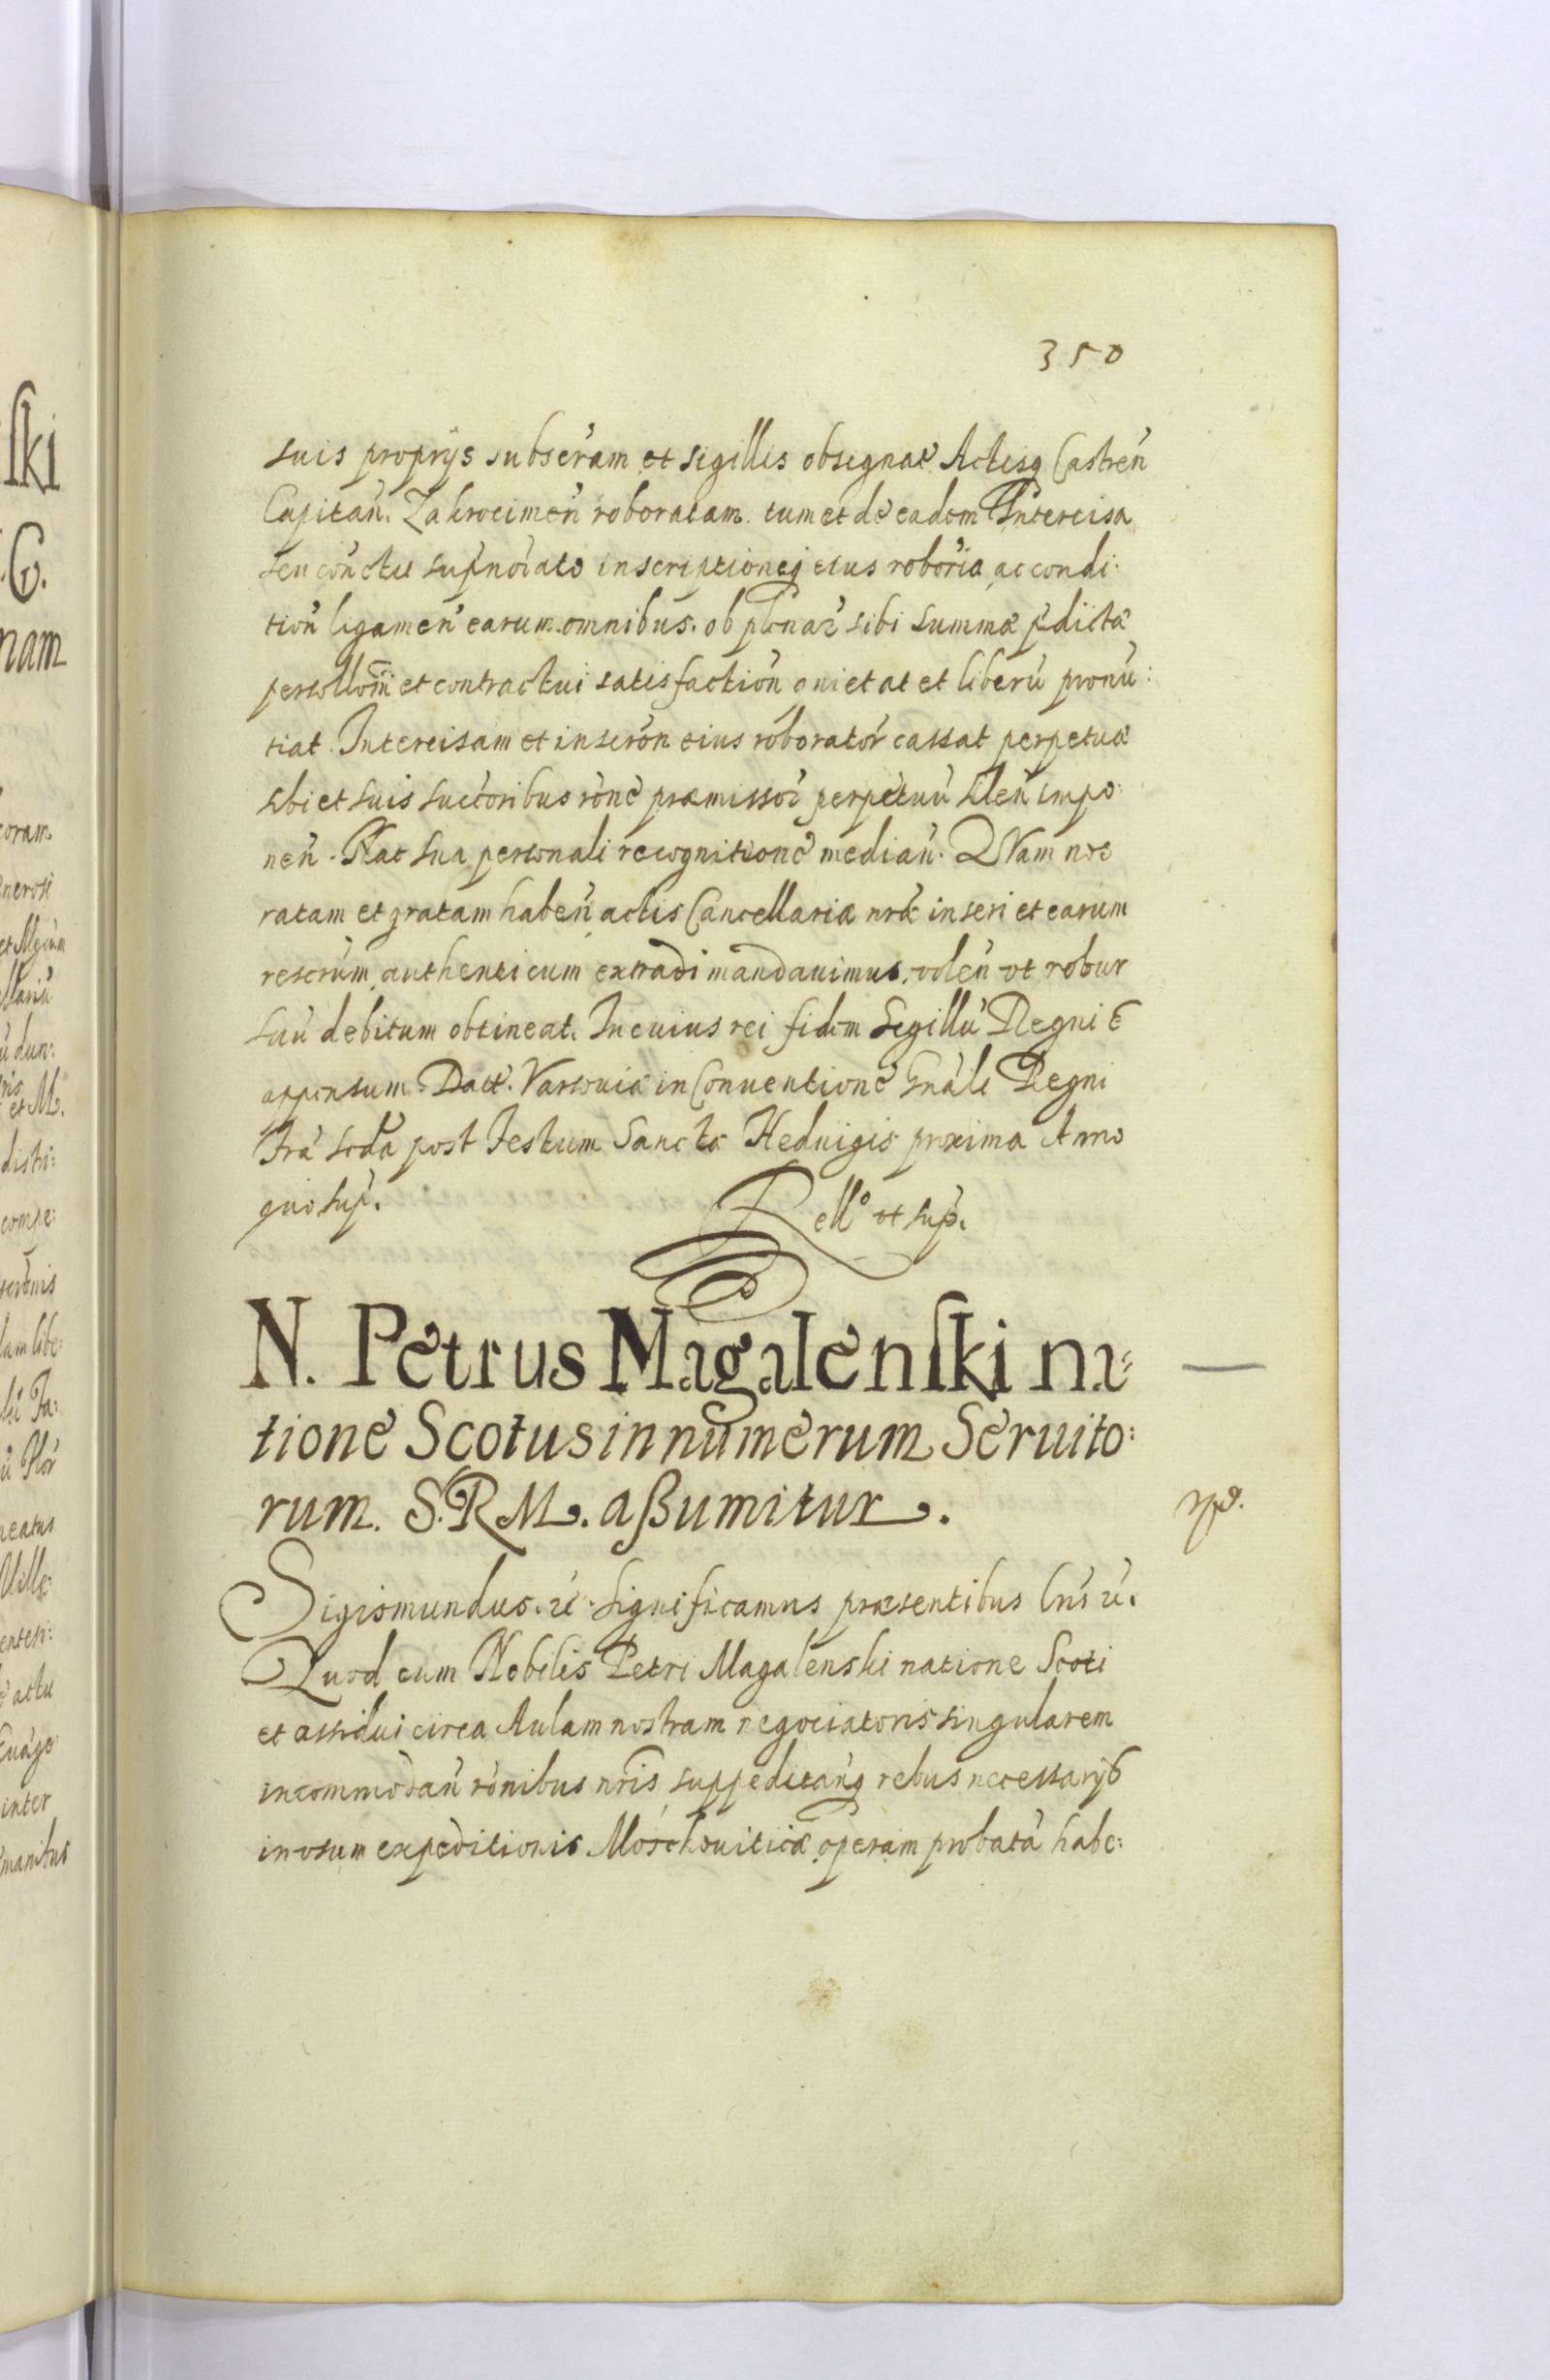 350
suis proprijs subscram et sigillis obsignat Actisq Castren
Capitan. Zakrocimen roboratam. tum et de eadem Intercisa
seu conctu supnoiato inscriptioneq eius roboria, ac condi:
tion ligamen earum omnibus. ob plenar sibi summæ pdictæ
persollom et contractui satisfaction quietat et liberu pronu:
tiat. Intercisam et inscron eius roborator cassat perpetuæ
sibi et suis suctoribus rone præmissor perpetuu silen impo:
nen. Hac sua personali recognitione median. QNam nos
ratam et gratam haben actis Cancellariæ nræ inseri et earum
rescrum authenticum extradi mandauimus, volen vt robur
suu debitum obtineat. In cuius rei fidem Sigillu Regni e
appensum. Datt. Varsouiæ in Conuentione Gnali Regni
fra scda post Festum Sanctæ Heduigis proxima Anno
quo sup.
Rello vt sup.
N. Petrus Magalenski na=
tione Scotus in numerum Seruito:
rum. S.R.M. aßumitur.
Sigismundus. &. Significamus præsentibus lris &.
Quod cum Nobilis Petri Magalenski natione Scoti
et assidui circa Aulam nostram negociatoris singularem
incommodan ronibus nris suppeditanq rebus necessarijs
in vsum expeditionis Moschouiticæ operam probata habe: